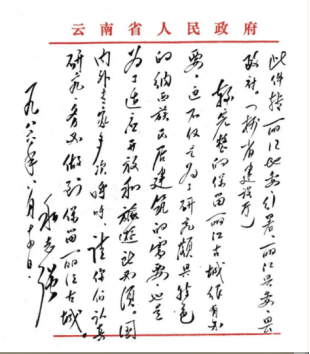 云南省人民政府
此件转丽江地委、行署、丽江县委、县
政府。（抄省建设厅）
较完整的保留丽江古城很有必
要，这不仅是为了研究颇具特色
的纳西族民居建筑的需要，也是
为了适应开放和旅游业必须。国
内外专家多次呼吁，请你们认真
研究，务必做到保留丽江古城。
和志强
一九八六年八月十日